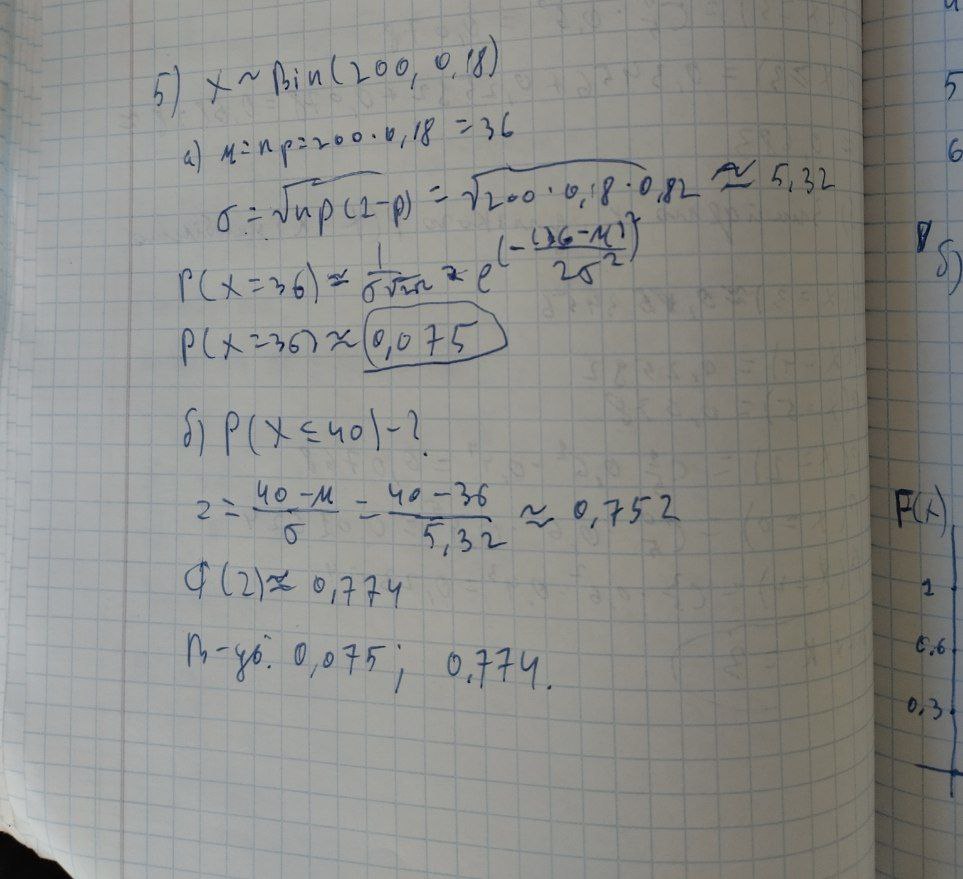 5) X ~ Bin(200, 0,18)
а) м = np = 200 · 0,18 = 36
σ = √np(1-p) = √200 · 0,18 · 0,82 ≈ 5,32
P(X=36) ≈ 1/σ√2π × e^(-(36-м)²/2σ²)
P(X=36) ≈ 0,075
б) P(X ≤ 40) - ?
z = 40-м/σ = 40-36/5,32 ≈ 0,752
Ф(z) ≈ 0,774
В-дь: 0,075; 0,774.
5
6
б)
F(x)
1
0,6
0,3